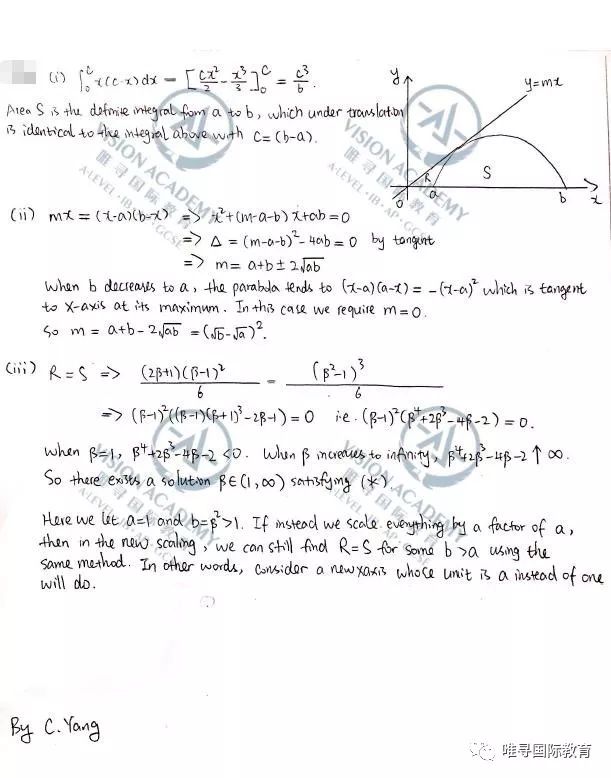 (i) ∫₀ᶜ x(c-x)dx = [cx²/2 - x³/3]₀ᶜ = c³/6.
y
y=mx
R
S
0
a
b
x
Area S is the definite integral from a to b, which under translation
is identical to the integral above with c=(b-a).
(ii) mx = (x-a)(b-x) => x²+(m-a-b)x+ab=0
=> Δ = (m-a-b)²-4ab=0 by tangent
=> m= a+b±2√ab
When b decreases to a, the parabola tends to (x-a)(a-x) = -(x-a)² which is tangent
to x-axis at its maximum. In this case we require m=0.
So m = a+b-2√ab = (√b-√a)².
(iii) R=S => (2β+1)(β-1)²/6 = (β²-1)³/6
=> (β-1)²((β-1)(β+1)³-2β-1)=0 i.e. (β-1)²(β⁴+2β³-4β-2)=0.
When β=1, β⁴+2β³-4β-2<0. When β increases to infinity, β⁴+2β³-4β-2↑∞.
So there exists a solution β∈(1,∞) satisfying (*).
Here we let a=1 and b=β²>1. If instead we scale everything by a factor of a,
then in the new scaling, we can still find R=S for some b>a using the
same method. In other words, consider a new xaxis whose unit is a instead of one
will do.
By C.Yang
VISION ACADEMY
唯寻国际教育
A-LEVEL·IB·AP·GCSE
VISION ACADEMY
唯寻国际教育
A-LEVEL·IB·AP·GCSE
VISION ACADEMY
唯寻国际教育
A-LEVEL·IB·AP·GCSE
VISION ACADEMY
唯寻国际教育
A-LEVEL·IB·AP·GCSE
唯寻国际教育